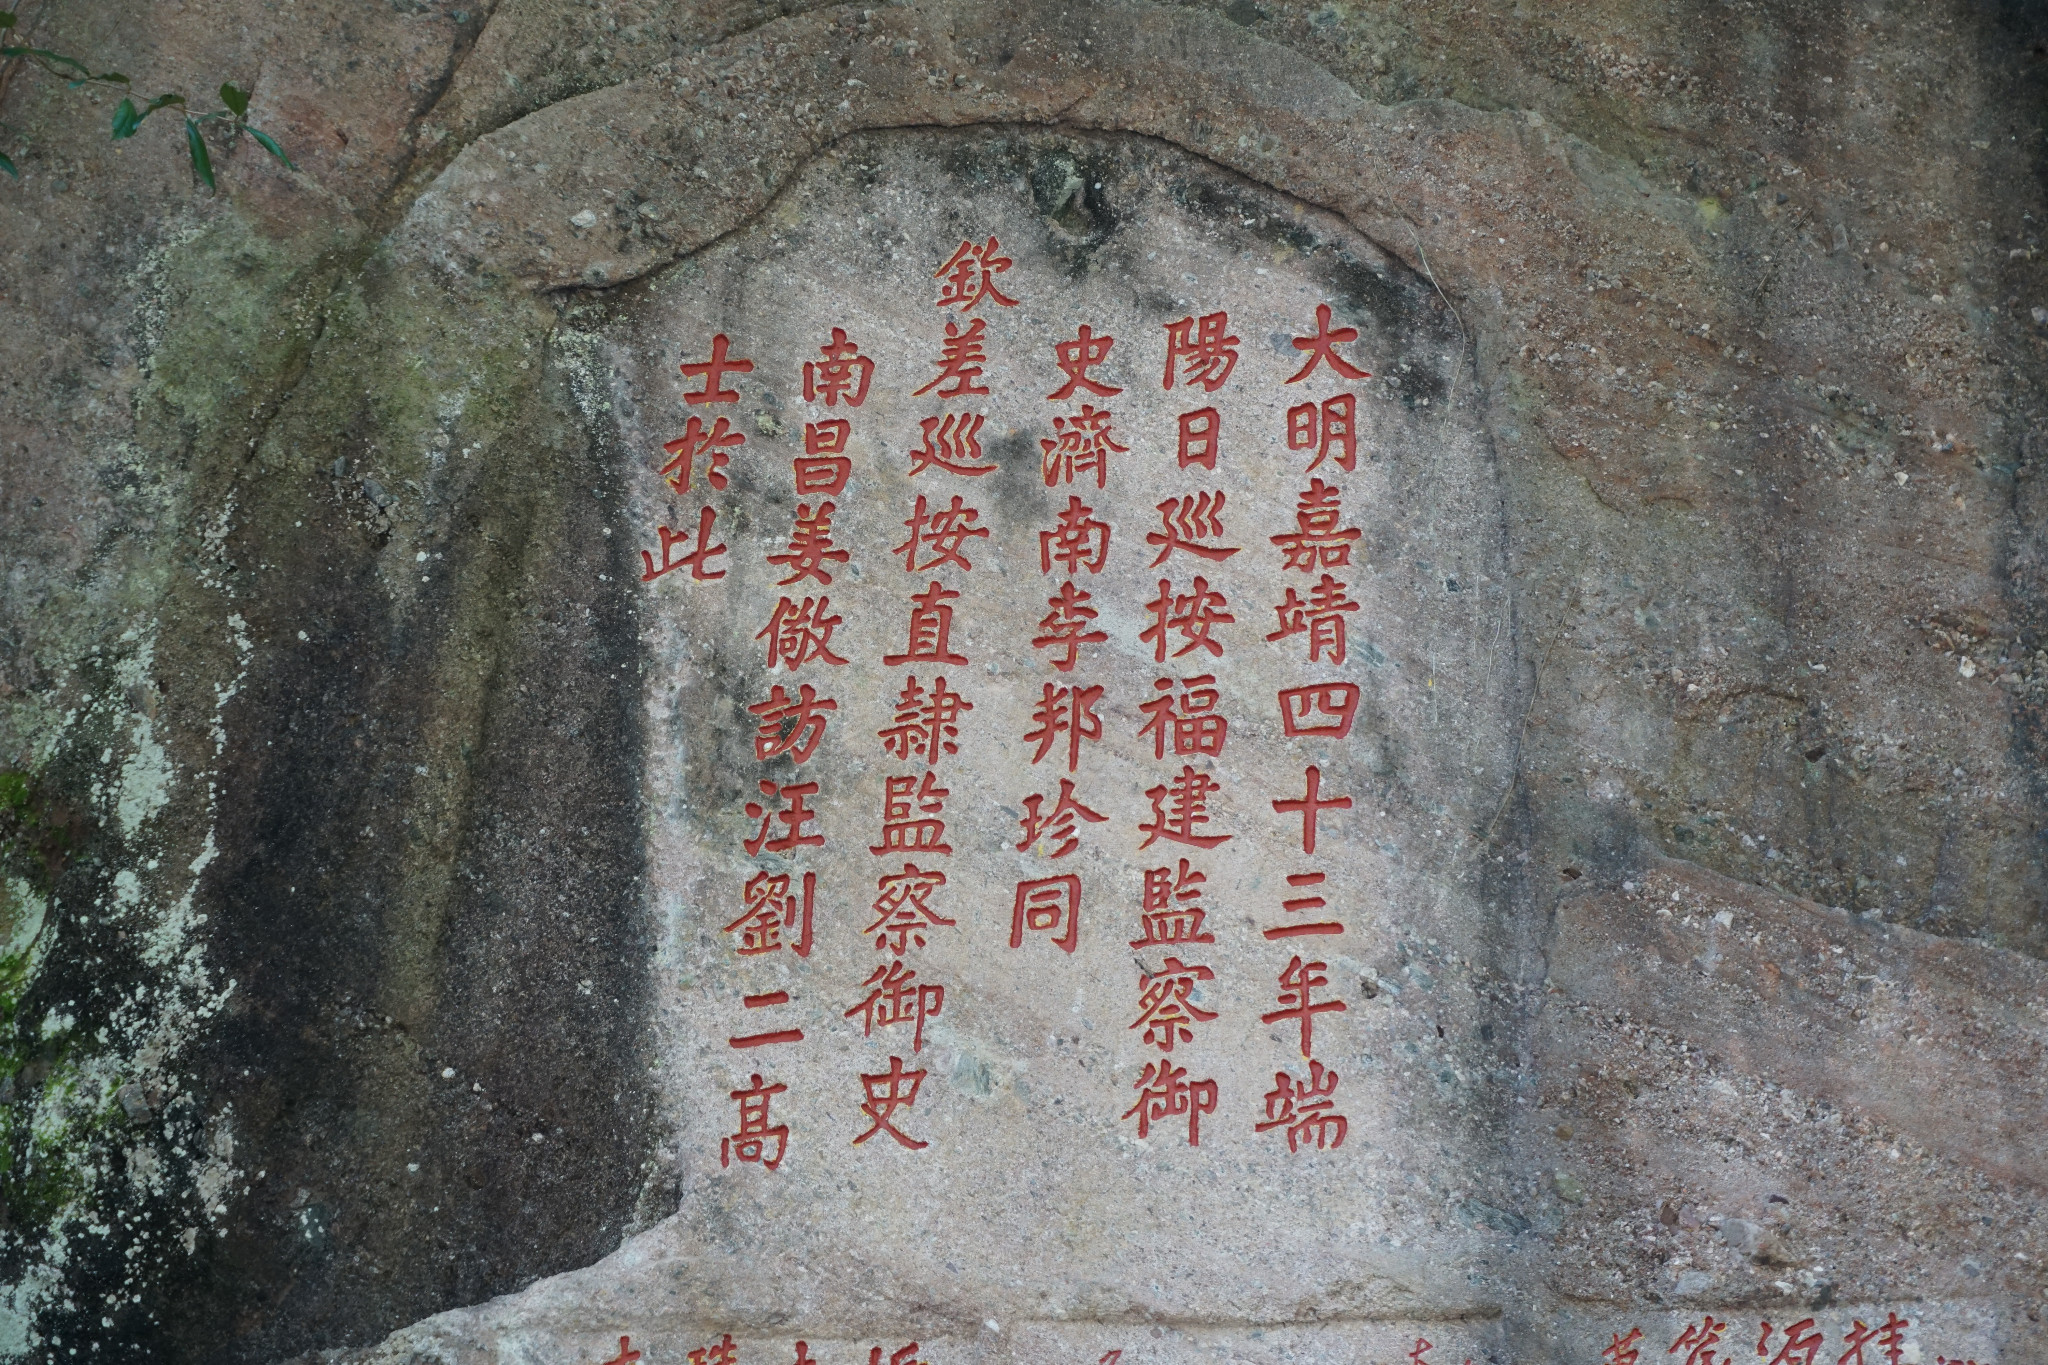 大明嘉靖四十三年端
陽日巡按福建監察御
史濟南李邦珍同
欽差巡按直隸監察御史
南昌姜儆訪汪劉二高
士於此